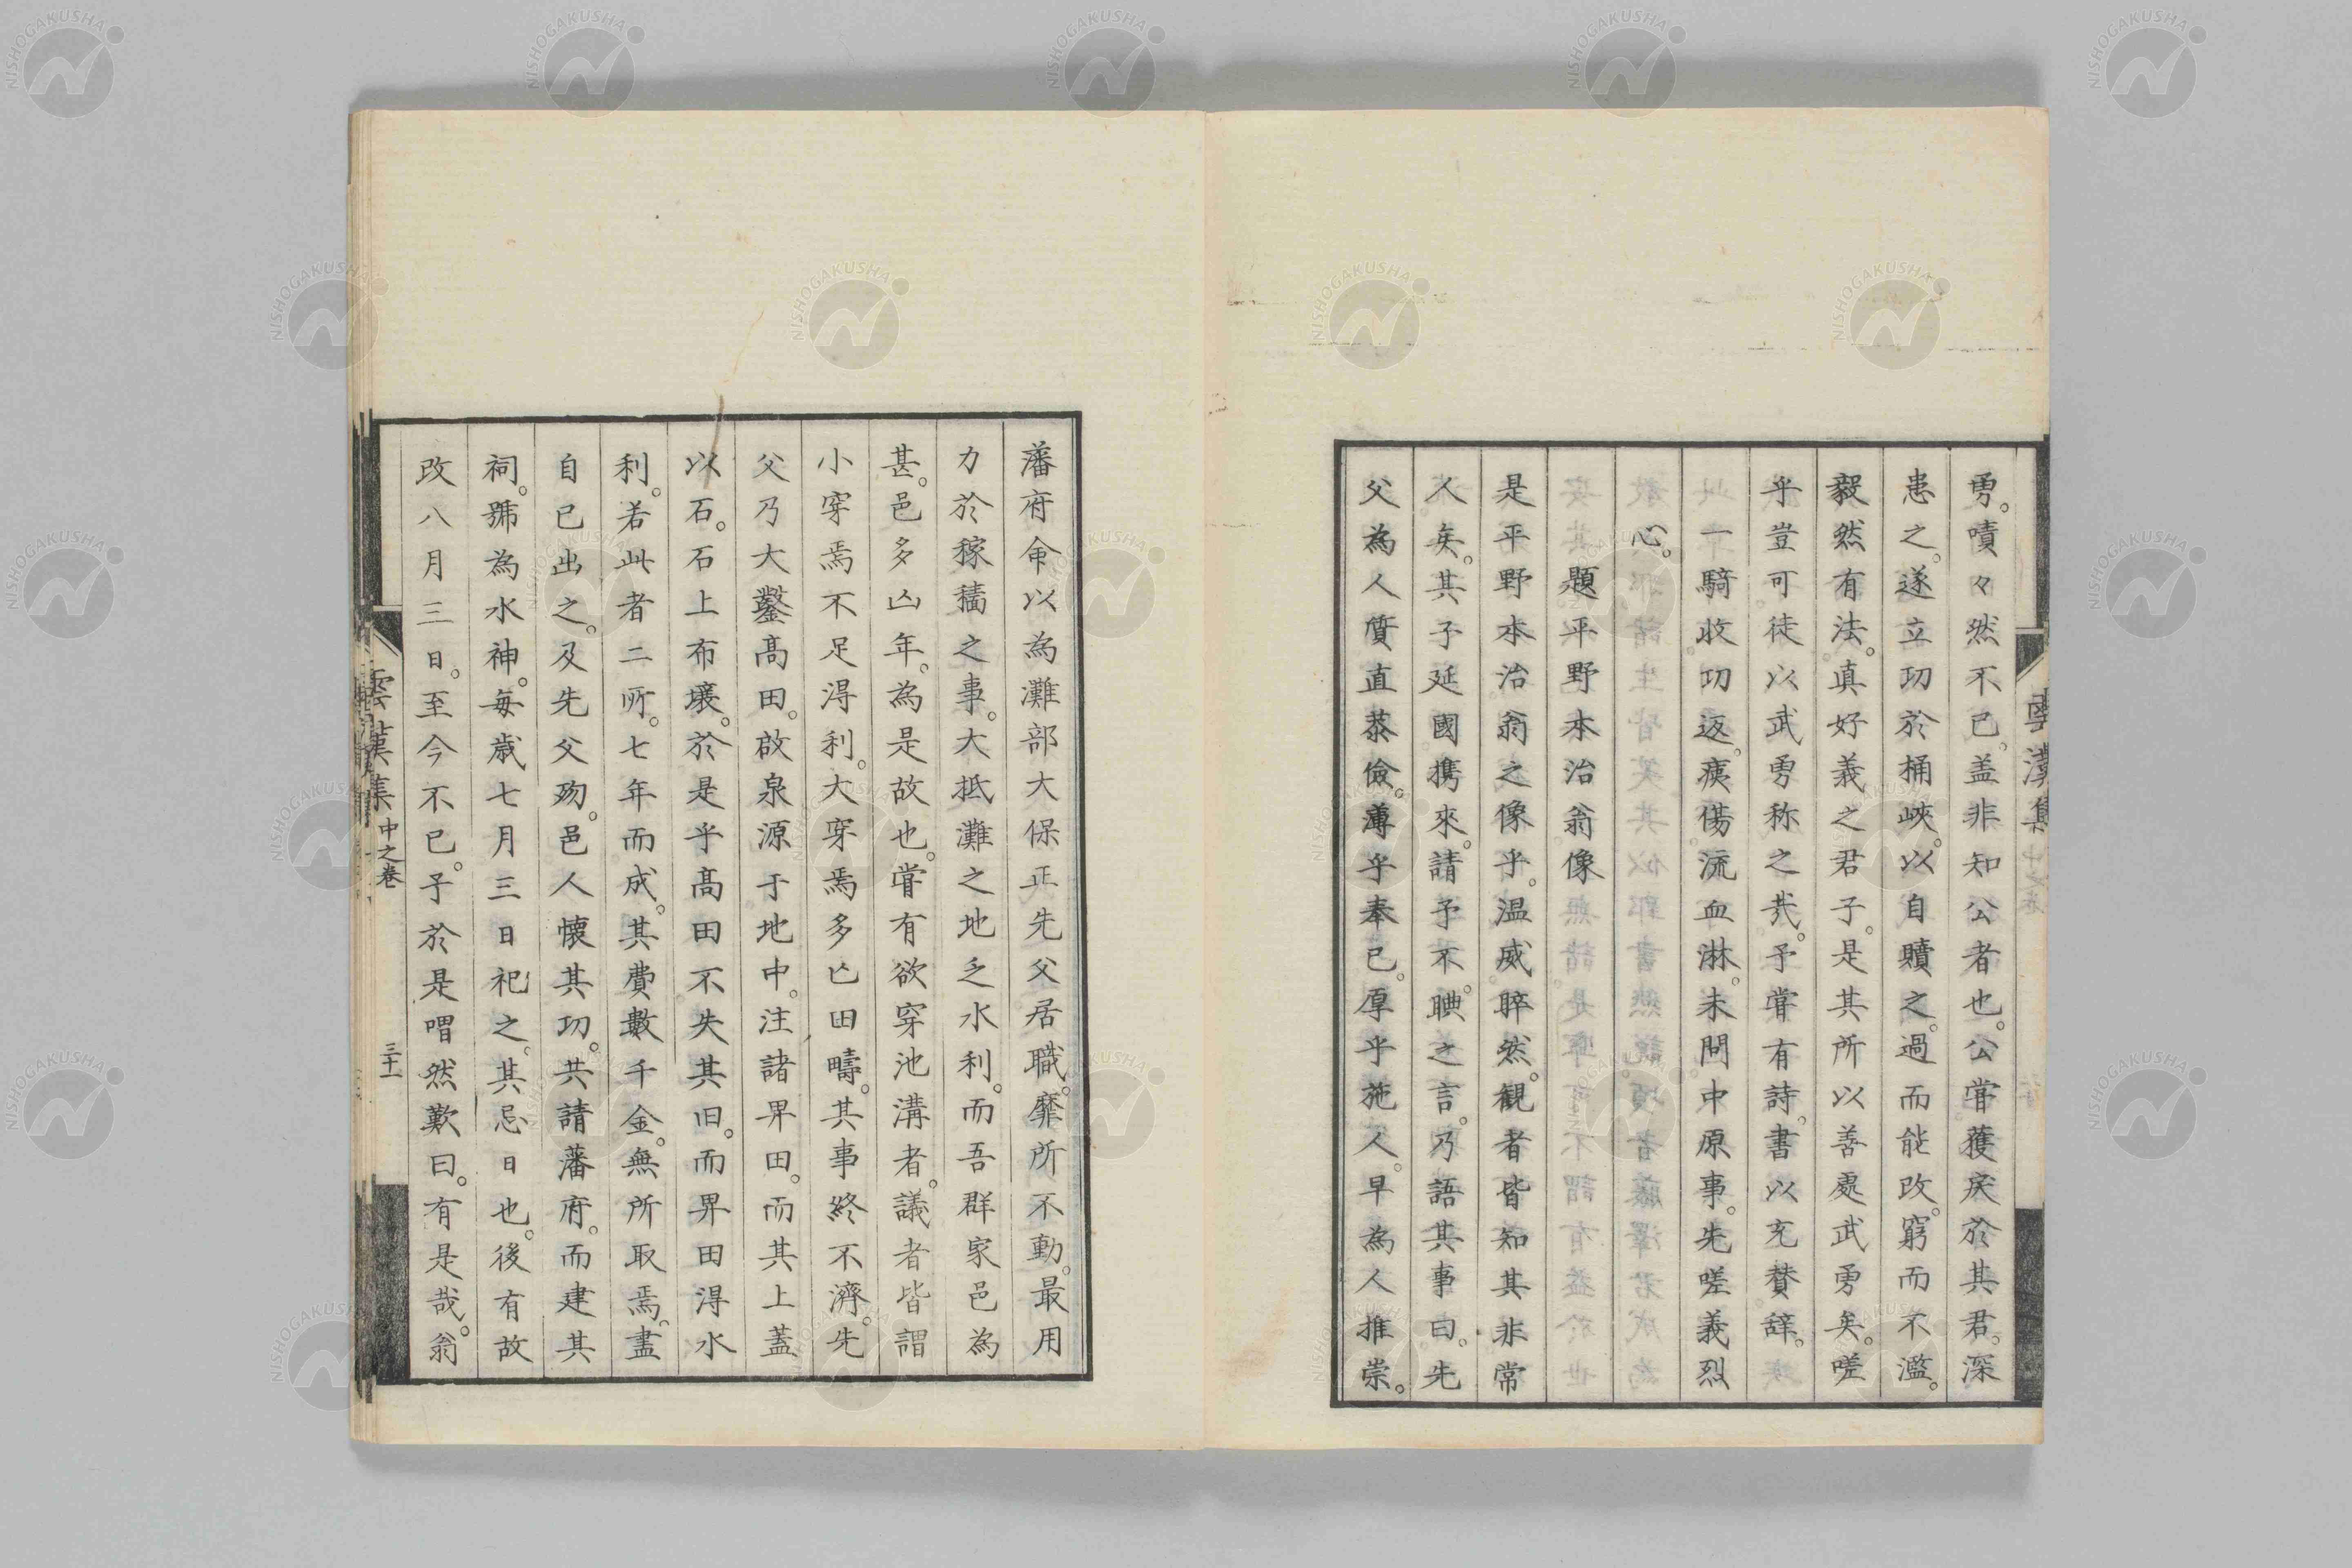 勇。嘖々然不已。盖非知公者也。公嘗獲戾於其君。深
患之。遂立功於桶峽。以自贖之。過而能改。窮而不濫。
毅然有法。真好義之君子。是其所以善處武勇矣。嗟
乎豈可徒以武勇称之㢤。予嘗有詩。書以充賛辞。
一騎收功返。痍傷流血淋。未問中原事。先嗟義烈
心。
題平野本治翁像
是平野本治翁之像乎。温威睟然。観者皆知其非常
人矣。其子延國携來。請予不腆之言。乃語其事曰。先
父為人質直恭儉。薄乎奉己。厚乎施人。早為人推崇。
藩府命以為灘部大保正先父居職。靡所不動。最用
力於稼穡之事。大抵灘之地乏水利。而吾群家邑為
甚。邑多凶年。為是故也。嘗有欲穿池溝者。議者皆謂
小穿焉不足得利。大穿焉多亡田疇。其事終不濟。先
父乃大鑿高田。啟泉源于地中。注諸畀田。而其上蓋
以石。石上布壤。於是乎高田不失其旧。而畀田得水
利。若此者二所。七年而成。其費數千金。無所取焉。盡
自己出之。及先父歿。邑人懷其功。共請藩府。而建其
祠。號為水神。每歲七月三日祀之。其忌日也。後有故
改八月三日。至今不已。予於是喟然歎曰。有是哉。翁
雲漢集 中之卷 三十一
NISHOGAKUSHA